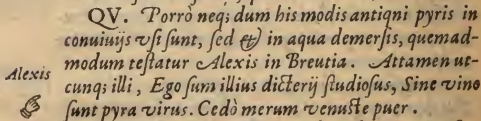 QV. Porrò neq; dum his modis antiqni pyris in
conuiuijs vsi sunt, sed & in aqua demersis, quemad-
modum testatur Alexis in Breutia. Attamen ut-
Alexis
cunq; illi, Ego sum illius dicterij studiosus, Sine vino
sunt pyra virus. Cedò merum venuste puer.